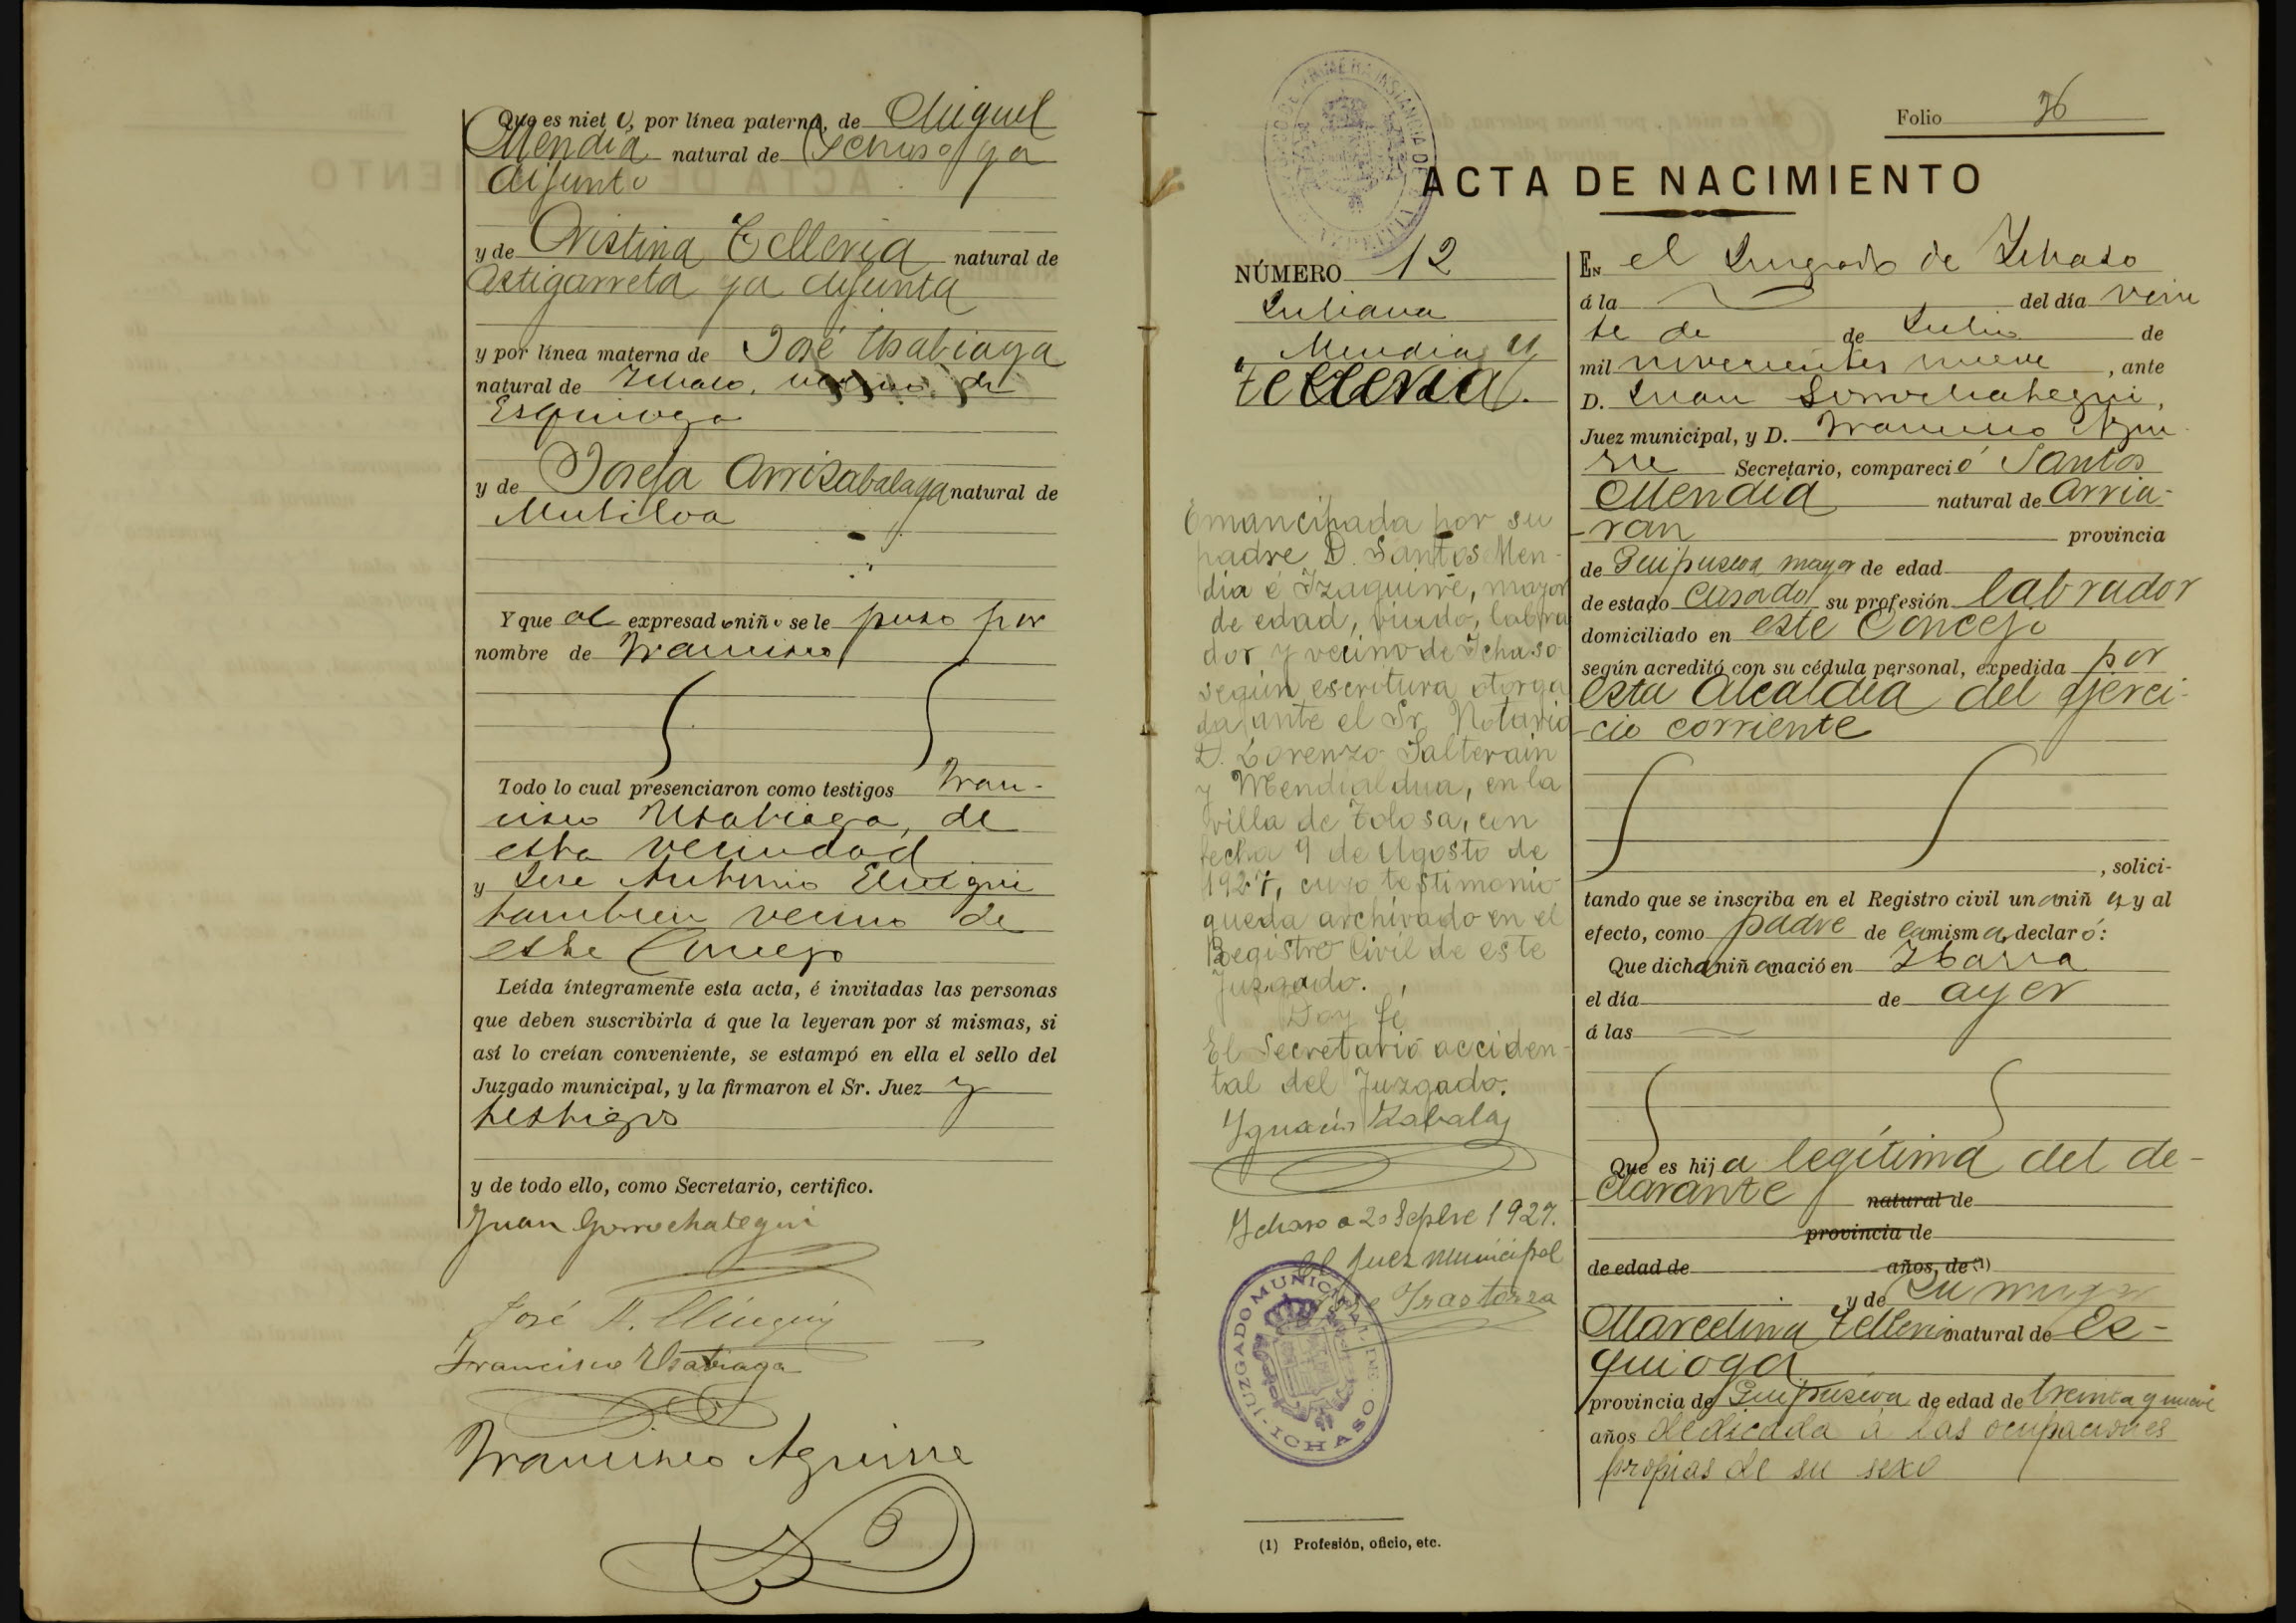 Que es nieto, por línea paterna, de Miguel
Mendia natural de Ichaso ya
difunto
y de Cristina Telleria natural de
Astigarreta ya difunta
y por línea materna de José Usabiaga
natural de Ichaso, vecino de
Esquioga
y de Josefa Arrizabalaga natural de
Mutiloa
Y que al expresado niño se le puso por
nombre de Francisco
Todo lo cual presenciaron como testigos Fran-
cisco Usabiaga, de
esta vecindad
y José Antonio
tambien vecino de
este Concejo
Leída íntegramente esta acta, é invitadas las personas
que deben suscribirla á que la leyeran por sí mismas, si
así lo creían conveniente, se estampó en ella el sello del
Juzgado municipal, y la firmaron el Sr. Juez y
testigos
y de todo ello, como Secretario, certifico.
Juan Gorrochategui
José A.
Francisco Usabiaga
Francisco Aguirre
Folio 26
ACTA DE NACIMIENTO
NÚMERO 12
Juliana
Mendia y
Telleria.
Emancipada por su
padre D. Santos Men-
dia é Izaguirre, mayor
de edad, viudo, labra
dor y vecino de Ichaso
según escritura otorga
da ante el Sr. Notario
D. Lorenzo Salterain
y Mendialdua, en la
villa de Tolosa, con
fecha 9 de Agosto de
1927, cuyo testimonio
queda archivado en el
Registro Civil de este
Juzgado.
Doy fe
El Secretario acciden-
tal del Juzgado.
Ygnacio Zabala
Ychaso a 20 Sepbre 1927.
El Juez municipal
JUZGADO MUNICIPAL DE ICHASO
(1) Profesión, oficio, etc.
EN el Juzgado de Ichaso
á la del día vein
te de de Julio de
mil novecientos nueve, ante
D. Juan Gorrochategui,
Juez municipal, y D. Francisco Agui
rre Secretario, compareció Santos
Mendia natural de Arria-
-ran provincia
de Guipuscoa mayor de edad
de estado casado su profesión labrador
domiciliado en este Concejo
según acreditó con su cédula personal, expedida por
esta Alcaldía del ejerci-
-cio corriente
, solici-
tando que se inscriba en el Registro civil una niña y al
efecto, como padre de la misma, declaró:
Que dicha niña nació en Ibarra
el día de ayer
á las
Que es hija legítima del de-
clarante natural de
provincia de
de edad de años, de (1)
y de su mujer
Marcelina Telleria natural de Es-
quioga
provincia de Guipuscoa de edad de treinta y nueve
años dedicada á las ocupaciones
propias de su sexo